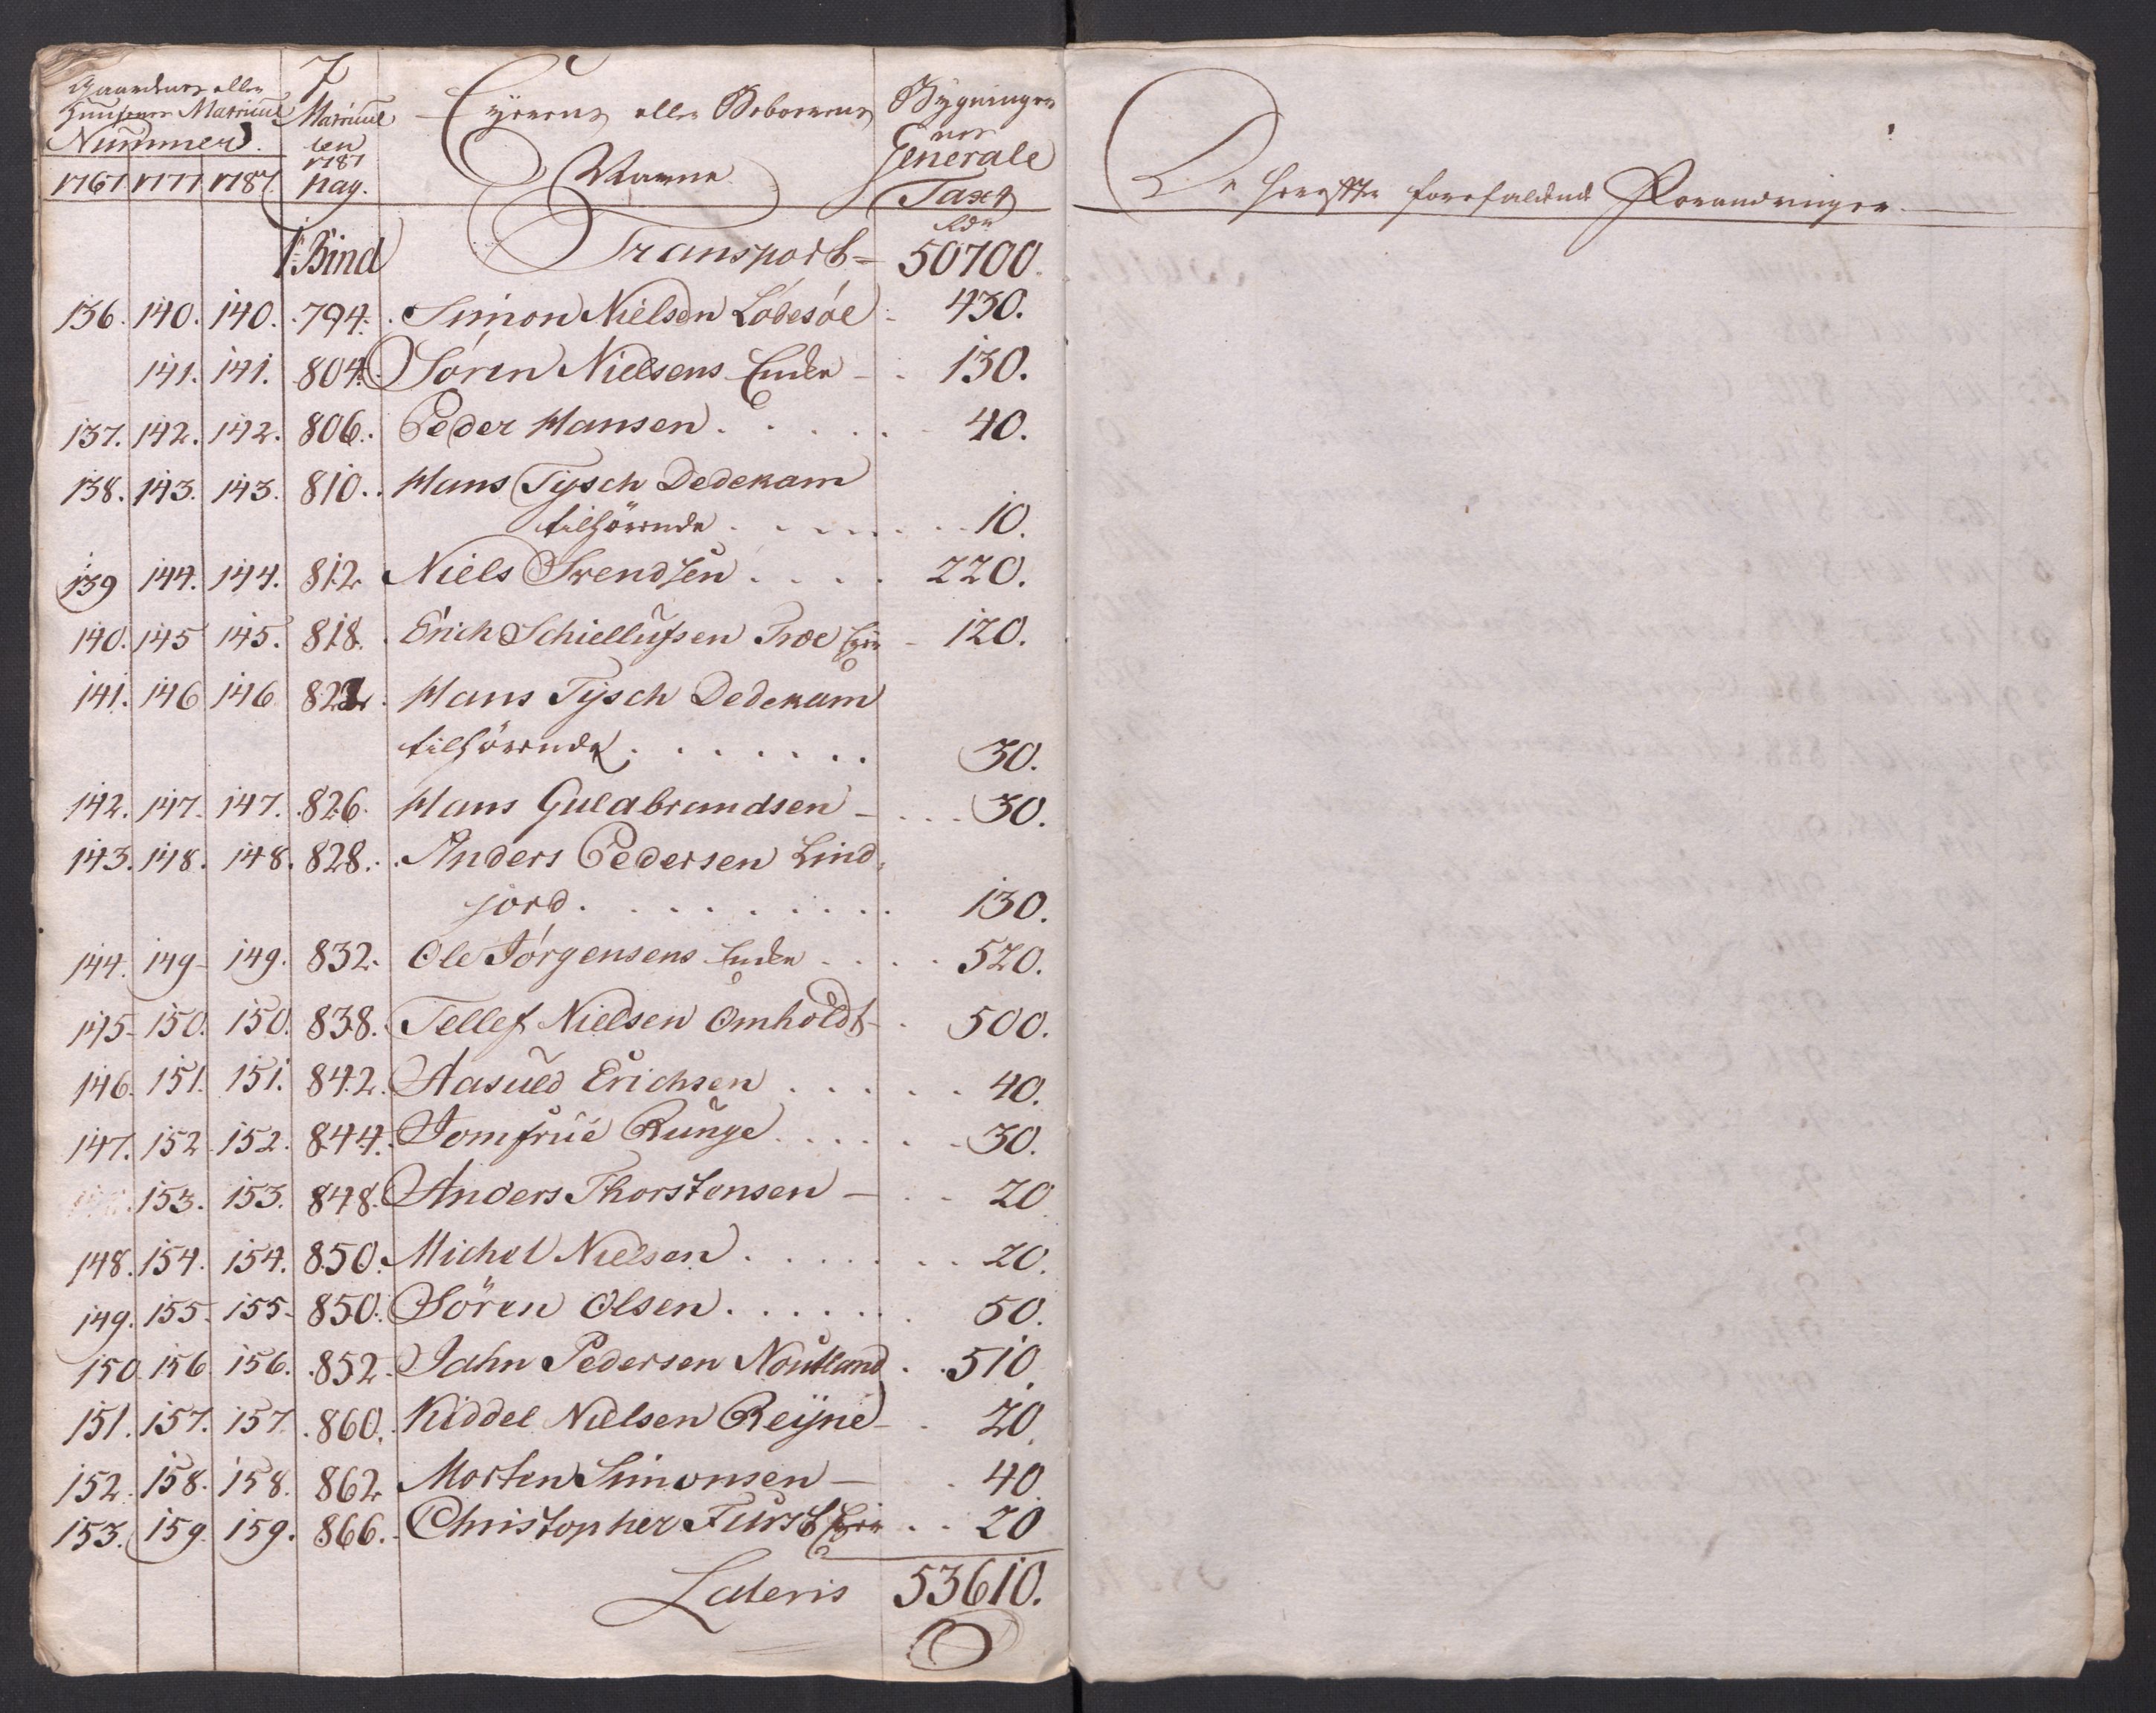 Gaardenes eller
Huusenes Matricul
Nummer.
1767 1777 1787
7
Matricul
len
1787
pag.
Eyerens eller Beboerens
Navne
Bygninger
nes
Generale
Taxt
1. Bind Transport - 50700.
Rdr
136. 140. 140. 794. Simon Nielsen Lödesöe - 430.
141. 141. 804. Sören Nielsens Enke - 130.
137. 142. 142. 806. Peder Hansen 40.
138. 143. 143. 810. Hans Tysch Dedekam
tilhörende 10.
139 144. 144. 812 Niels Svendsen 220.
140. 145 145. 818. Erich Schiellufsen Troe - 120.
141. 146 146 822. Hans Tysch Dedekam
tilhörende 30.
142. 147. 147. 826. Hans Gulabrandsen - 30.
143. 148. 148. 828. Anders Pedersen Lind,
jord. 130.
144. 149- 149. 832. Ole Jörgensens Enke 520.
145- 150. 150. 838. Tellef Nielsen Omholdt - 500.
146. 151. 151. 842. Aasuld Erichsen 40.
147. 152 152. 844. Jomfrue Runge 30.
153. 153. 848. Anders Thorstensen - 20
148. 154. 154. 850. Michel Nielsen 20.
149. 155. 155- 850. Sören Olsen 50.
150. 156. 156. 852. Jahn Pedersen Noutland 510.
151. 157. 157. 860. Kiddel Nielsen Reÿne - 20.
152. 158. 158. 862 Morten Simonsen - 40.
153. 159. 159. 866. Christopher Furst 20
Lateris 53610.
De herefter forefaldende Forandringer.